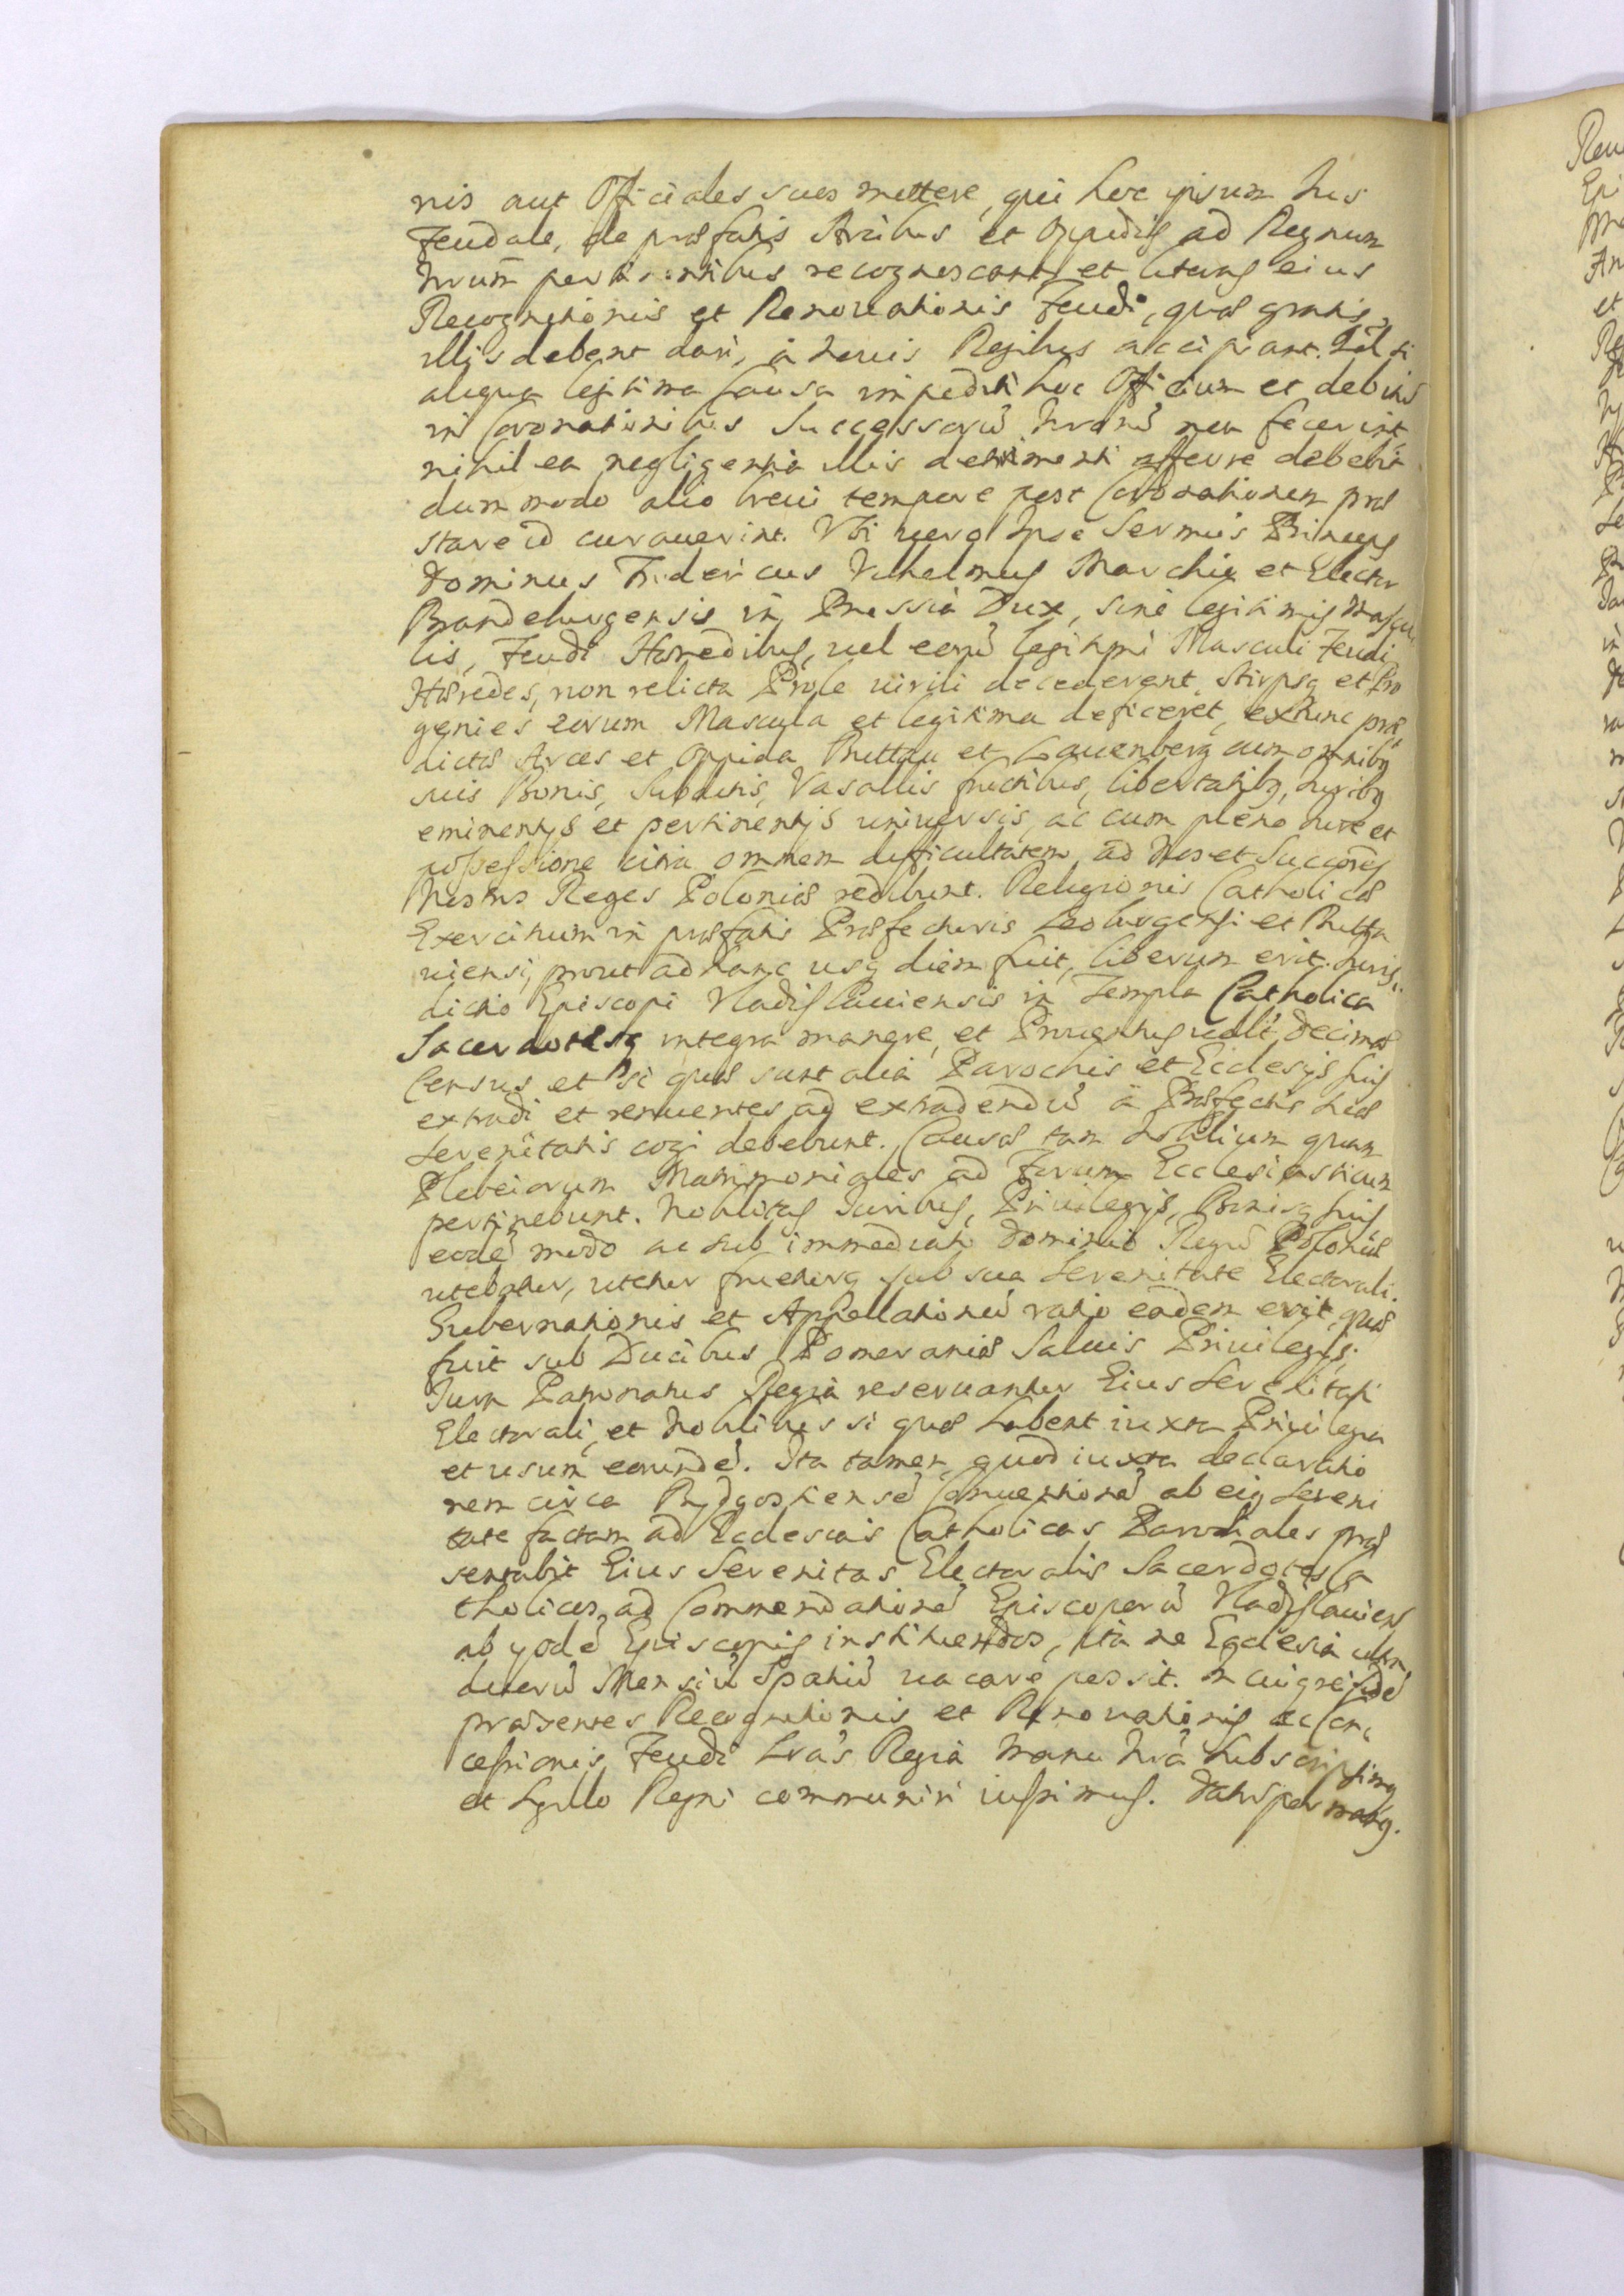 nis aut Officiales suos mittere, qui hoc ipsum Ius
Feudale, de præfatis Arcibus et Oppidis ad Regnum
Nrum pertinentibus recognoscant et literas eius
Recognitionis et Renovationis Feudi, quæ gratis
illis debent dari, à novis Regibus accipiant. Et si
aliqua legitima Causa impediti hoc Officium et debitũ
in Coronationibus Successorũ Nrorũ non fecerint,
nihil ea negligentia illis detrimenti afferre debebit
dummodo alio brevi tempore post Coronationem præ
stare id curauerint. Vbi vero Ipse Sermus Princeps
Dominus Fridericus Vilhelmus Marchio et Elector
Brandeburgensis in Prussia Dux, sine legitimis Mascu
lis, Feudi Hæredibus, uel eorũ legitimi Masculi Feudi
Hæredes, non relicta Prole uirili decederent, Stirpsq et Pro
genies eorum Mascula et legitima deficeret, extunc præ
dictæ Arces et Oppida Buttou et Lauenberg cum omnibg
suis Bonis, Subditis, Vasallis fructibus, libertatibg, Iuribg
eminentijs et pertinentijs uniuersis, ac cum pleno iure et
possessione citra omnem difficultatem, ad Nos et Succores
Nostros Reges Poloniæ redibunt. Religionis Catholicæ
Exercitium in præfatis Præfecturis Leoburgensi et Butto
uiensi, prout ad hanc usq diem fuit, liberum erit. Juris,
dictio Episcopi Vladislauiensis in Templa Catholica
Sacerdotesq integra manere, et Prouentus uulť, Decimæ
Census et si quæ sunt alia Parochis et Ecclesijs suis
extradi et renuentes ad extradendũ à Præfectis suæ
Serenitatis cogi debebunt. Causæ tam Nobilium quam
Plebeiorum Matrimoniales ad Forum Ecclesiasticum
pertinebunt. Nobilitas Iuribus, Priuilegijs, Bonisq suis
eodẽ modo ac sub immediato Dominio Regũ Poloniæ
utebatur, utetur frueturq sub sua Serenitate Electorali.
Gubernationis et Appellationũ ratio eadem erit quæ
fuit sub Ducibus Pomeraniæ Saluis Priuilegijs.
Iura Patronatus Regia reseruantur Eius Serenitati
Electorali, et Nobilibus si quæ habent iuxta Priuilegia
et usum eorundẽ. Ita tamen quod iuxta declaratio
nem circa Bydgostiensẽ Conuentionẽ ab eig Sereni
tate factam ad Ecclesias Catholicas Parochiales præ
sentabit Eius Serenitas Electoralis Sacerdotes Ca
tholicos, ad Commendationẽ Episcoporũ Vladislauiens
ab ijsdẽ Episcopis instituendos, ita ne Ecclesia ultra
duorũ Mensiũ Spatiũ uacare possit. In cuig rei fidẽ
præsentes Recognitionis et Renouationis ac Con
cessionis Feudi Lrás Regia Manu Nrá Subscripsimg
et Sgillo Regni communiri iussimus. Datũ